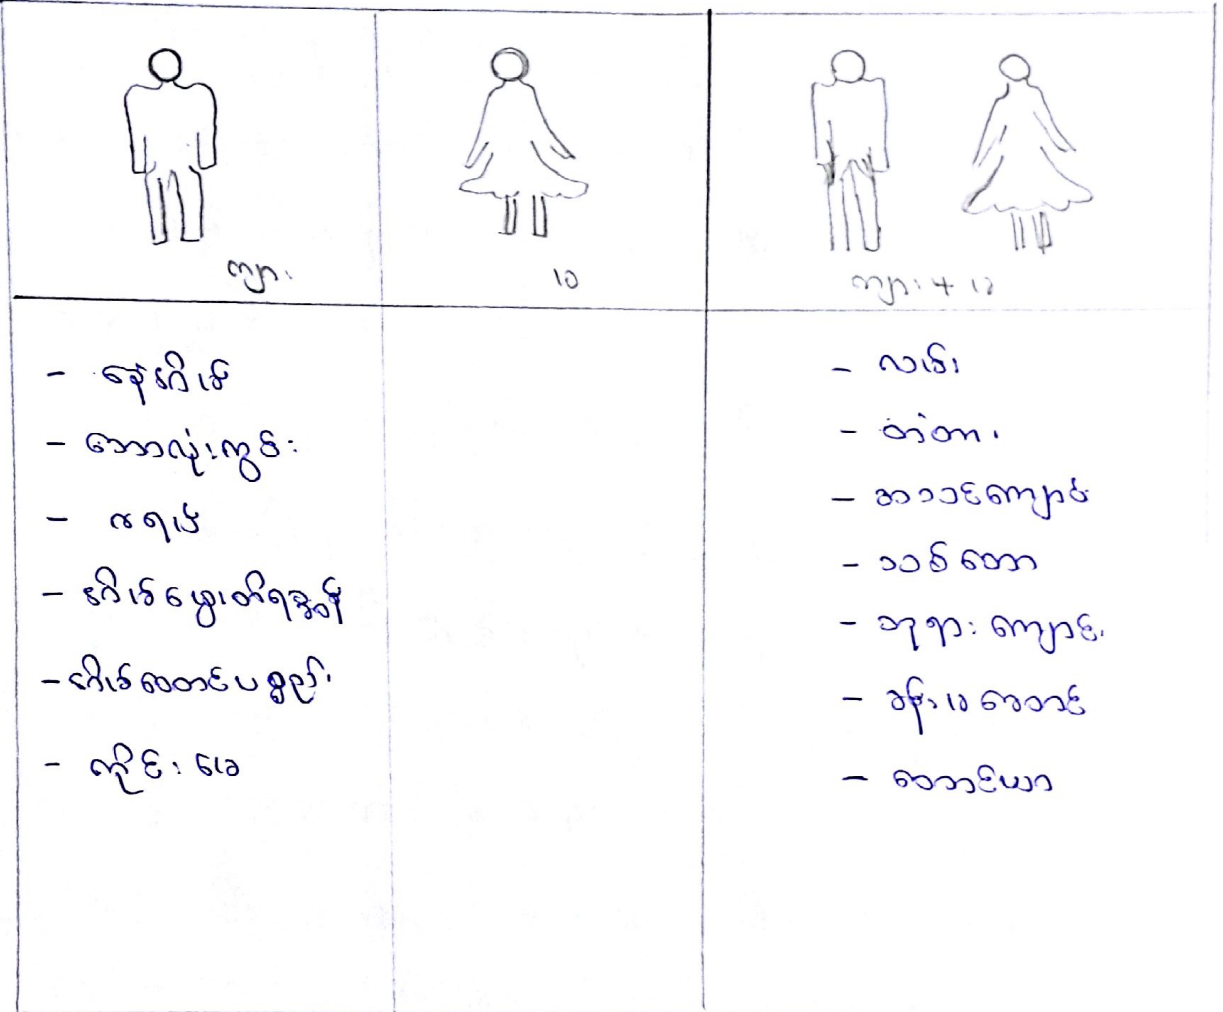 ကျား
မ
ကျား + မ
- နေအိမ်
- ဘောလုံးကွင်း
- အိမ်မွေးတိရစ္ဆာန်
- အိမ်ထောင်ပစ္စည်း
- ကိုင်းမြေ
- လမ်း
- တံတား
- စာသင်ကျောင်း
- သစ်တော
- ဘုရားကျောင်း
- ခန်းမဆောင်
- တောင်ယာ